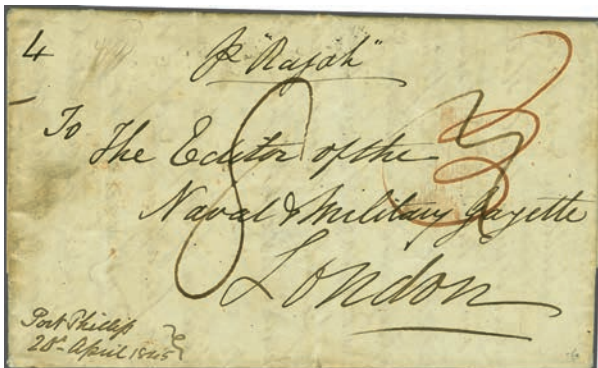 4
P "Rajah"
8
To
The Editor of the
Naval & Military Gazette
London
Port Phillip
20th April 1845